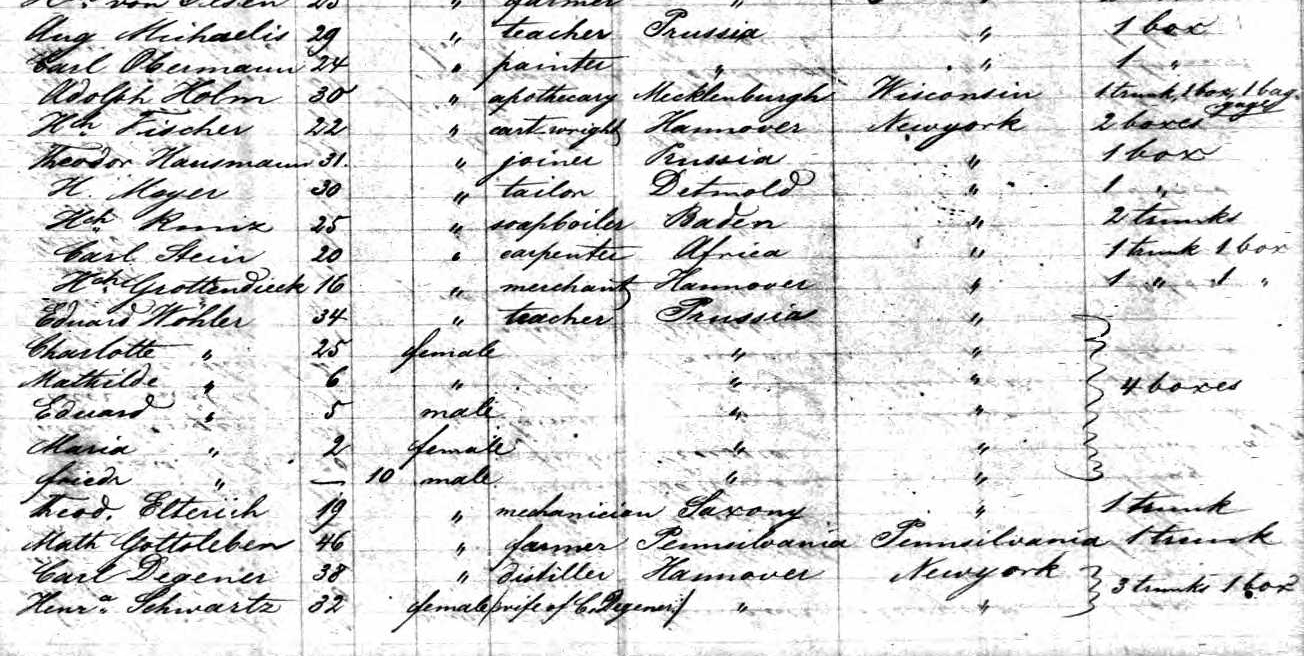 von 23 " farmer "
Aug Michaelis 29 " teacher Prussia " 1 box
Carl Obermann 24 " painter " " 1 "
Adolph Holm 30 " apothecary Mecklenburgh Wisconsin 1 trunk, 1 box, 1 bag-
gage
Hch Fischer 22 " cartwright Hannover Newyork 2 boxes
Theodor Hausmann 31. " joiner Prussia " 1 box
H. Meyer 30 " tailor Detmold " 1 "
Hch Kunz 25 " soapboiler Baden " 2 trunks
Carl Stein 20 " carpenter Africa " 1 trunk 1 box
Hch Grottendieck 16 " merchant Hannover " 1 " 1 "
Eduard Wöhler 34 " teacher Prussia "
Charlotte " 25 female " "
Mathilde " 6 " " " 4 boxes
Eduard " 5 male " "
Maria " 2 female " "
friedr " — 10 male " "
Theod. Elterich 19 " mechanician Saxony " 1 trunk
Math Gottsleben 46 " farmer Pennsilvania Pennsilvania 1 trunk
Carl Degener 38 " distiller Hannover Newyork 3 trunks 1 box
Henr.a Schwartz 32 female /wife of C. Degener/ " "